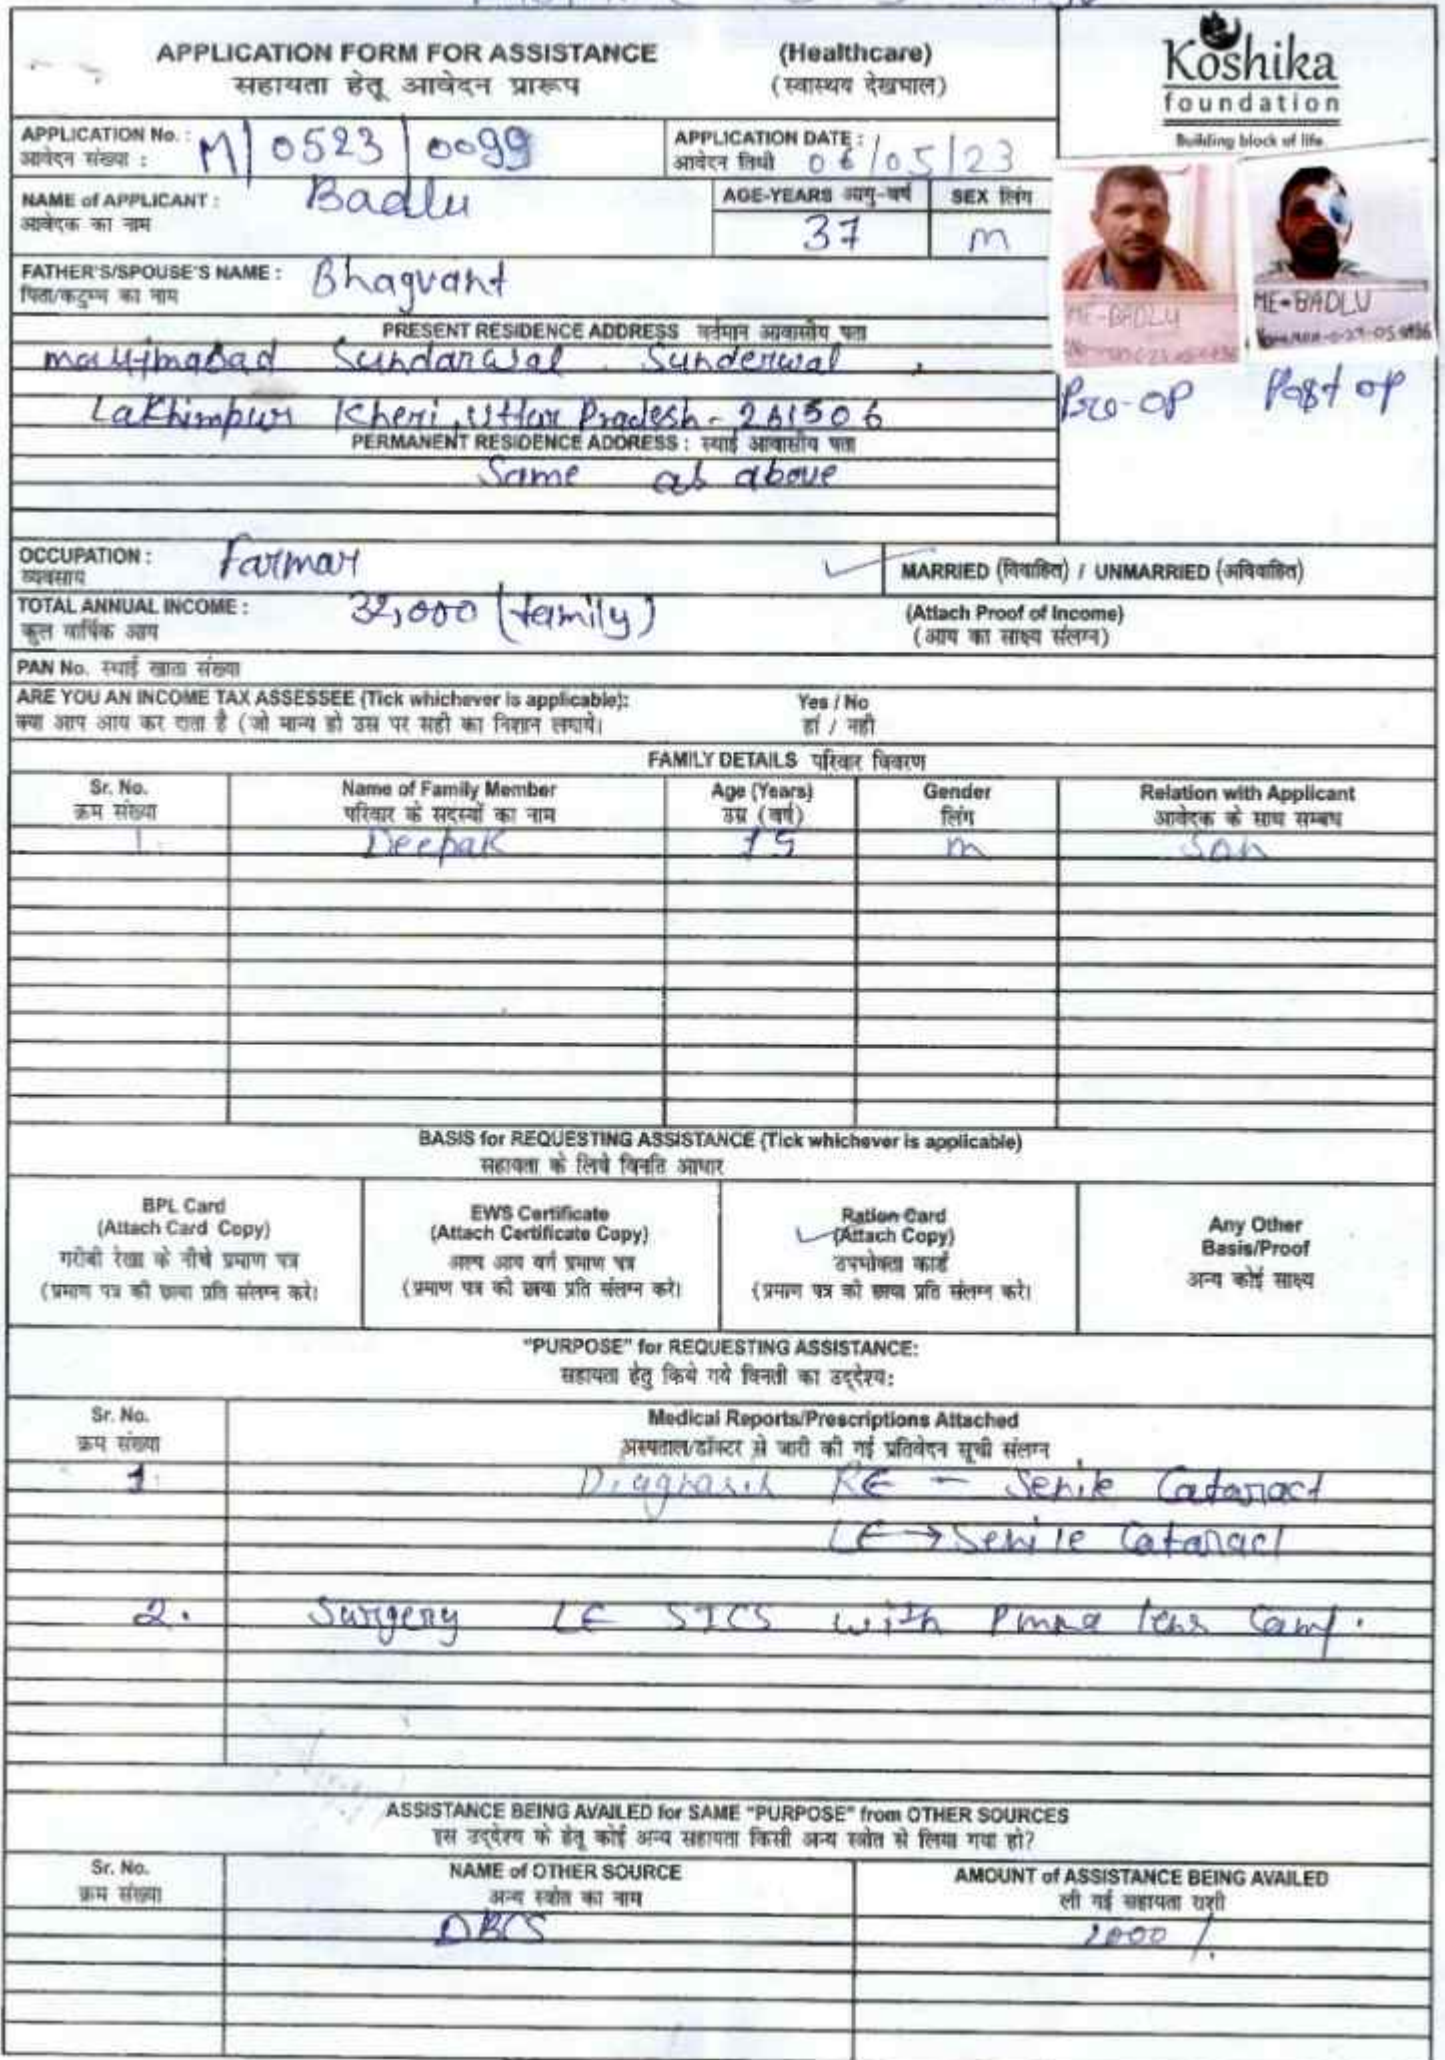 APPLICATION FORM FOR ASSISTANCE (Healthcare)
सहायता हेतू आवेदन प्रारूप (स्वास्थय देखभाल)
Koshika
foundation
Building block of life
APPLICATION No. : M/0523/0099
आवेदन संख्या :
APPLICATION DATE : 06/05/23
आवेदन तिथी
NAME of APPLICANT : Badlu
आवेदक का नाम
AGE-YEARS आयु-वर्ष 37
SEX लिंग m
FATHER'S/SPOUSE'S NAME : Bhagvant
पिता/कटुम्ब का नाम
ME-BADLU
ME-BADLU
Pre-op Post op
PRESENT RESIDENCE ADDRESS वर्तमान आवासीय पता
Sundarwal Sunderwal,
Lakhimpur Kheri, Uttar Pradesh - 261506
PERMANENT RESIDENCE ADDRESS : स्थाई आवासीय पता
Same as above
OCCUPATION : Farmar
व्यवसाय
MARRIED (विवाहित) / UNMARRIED (अविवाहित)
TOTAL ANNUAL INCOME : 32,000 (family)
कुल वार्षिक आय
(Attach Proof of Income)
(आय का साक्ष्य संलग्न)
PAN No. स्थाई खाता संख्या
ARE YOU AN INCOME TAX ASSESSEE (Tick whichever is applicable): Yes / No
क्या आप आय कर दाता है (जो मान्य हो उस पर सही का निशान लगाये। हां / नही
FAMILY DETAILS परिवार विवरण
Sr. No. Name of Family Member Age (Years) Gender Relation with Applicant
क्रम संख्या परिवार के सदस्यों का नाम उम्र (वर्ष) लिंग आवेदक के साथ सम्बध
1. Deepak 15 m Son
BASIS for REQUESTING ASSISTANCE (Tick whichever is applicable)
सहायता के लिये विनति आधार
BPL Card
(Attach Card Copy)
गरीबी रेखा के नीचे प्रमाण पत्र
(प्रमाण पत्र की छाया प्रति संलग्न करे।
EWS Certificate
(Attach Certificate Copy)
अल्प आय वर्ग प्रमाण पत्र
(प्रमाण पत्र की छाया प्रति संलग्न करे।
Ration Card
(Attach Copy)
उपभोक्ता कार्ड
(प्रमाण पत्र की छाया प्रति संलग्न करे।
Any Other
Basis/Proof
अन्य कोई साक्ष्य
"PURPOSE" for REQUESTING ASSISTANCE:
सहायता हेतु किये गये विनती का उद्देश्य:
Sr. No. Medical Reports/Prescriptions Attached
क्रम संख्या अस्पताल/डॉक्टर से जारी की गई प्रतिवेदन सूची संलग्न
1 RE - Senile Cataract
LE → Senile Cataract
2. Surgery LE SICS with Pmma lens
ASSISTANCE BEING AVAILED for SAME "PURPOSE" from OTHER SOURCES
इस उद्देश्य के हेतू कोई अन्य सहायता किसी अन्य स्त्रोत से लिया गया हो?
Sr. No. NAME of OTHER SOURCE AMOUNT of ASSISTANCE BEING AVAILED
क्रम संख्या अन्य स्त्रोत का नाम ली गई सहायता राशी
DBCS 2000/.